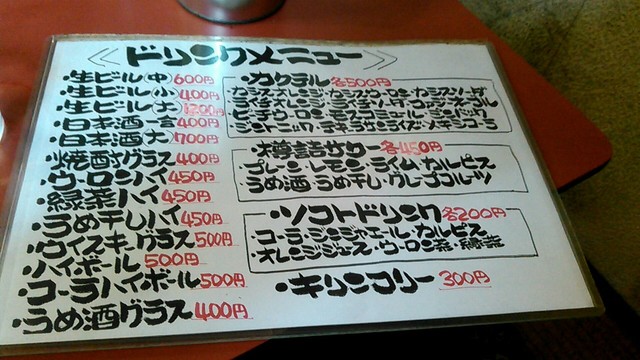 ドリンクメニュー
・生ビール(中) 600円
・生ビール(小) 400円
・生ビール(大) 1200円
・日本酒一合 400円
・日本酒(大) 700円
・焼酎グラス 400円
・ウーロンハイ 450円
・緑茶ハイ 450円
・うめ干しハイ 450円
・ウイスキーグラス 500円
・ハイボール 500円
・コーラハイボール 500円
・うめ酒グラス 400円
・カクテル 各500円
カシスオレンジ・カシスウーロン・カシスソーダ
ライチオレンジ・ライチソーダ・ファジーネーブル
ピーチウーロン・モスコミュール・ジンバック
ジントニック・テキーラサンライズ・ウォッカコーラ
・樽詰サワー 各450円
プレーン・レモン・ライム・カルピス
うめ酒・うめ干し・グレープフルーツ
・ソフトドリンク 各200円
コーラ・ジンジャエール・カルピス
オレンジジュース・ウーロン茶・緑茶
・キリンフリー 300円